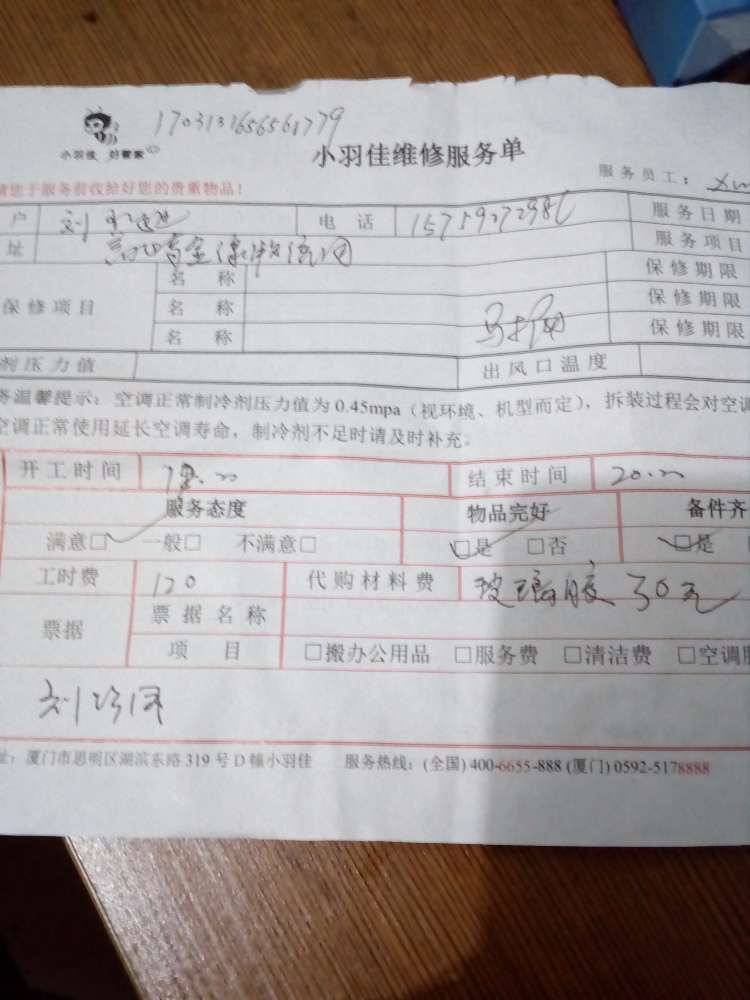 1703131656561779
小羽佳 好管家
小羽佳维修服务单
服务员工：
请您于服务前收拾好您的贵重物品！
户 刘 电 话 服务日期
址 服务项目
保修项目 名 称 保修期限
名 称 保修期限
名 称 保修期限
剂压力值 出风口温度
务温馨提示：空调正常制冷剂压力值为 0.45mpa（视环境、机型而定），拆装过程会对空调
空调正常使用延长空调寿命，制冷剂不足时请及时补充。
开工时间 结束时间
服务态度 物品完好 备件齐
满意□ 一般□ 不满意□ □是 □否 □是
工时费 120 代购材料费 玻璃胶 30元
票据 票据名称
项 目 □搬办公用品 □服务费 □清洁费 □空调服
址：厦门市思明区湖滨东路 319 号 D 幢小羽佳 服务热线：(全国) 400-6655-888 (厦门) 0592-5178888